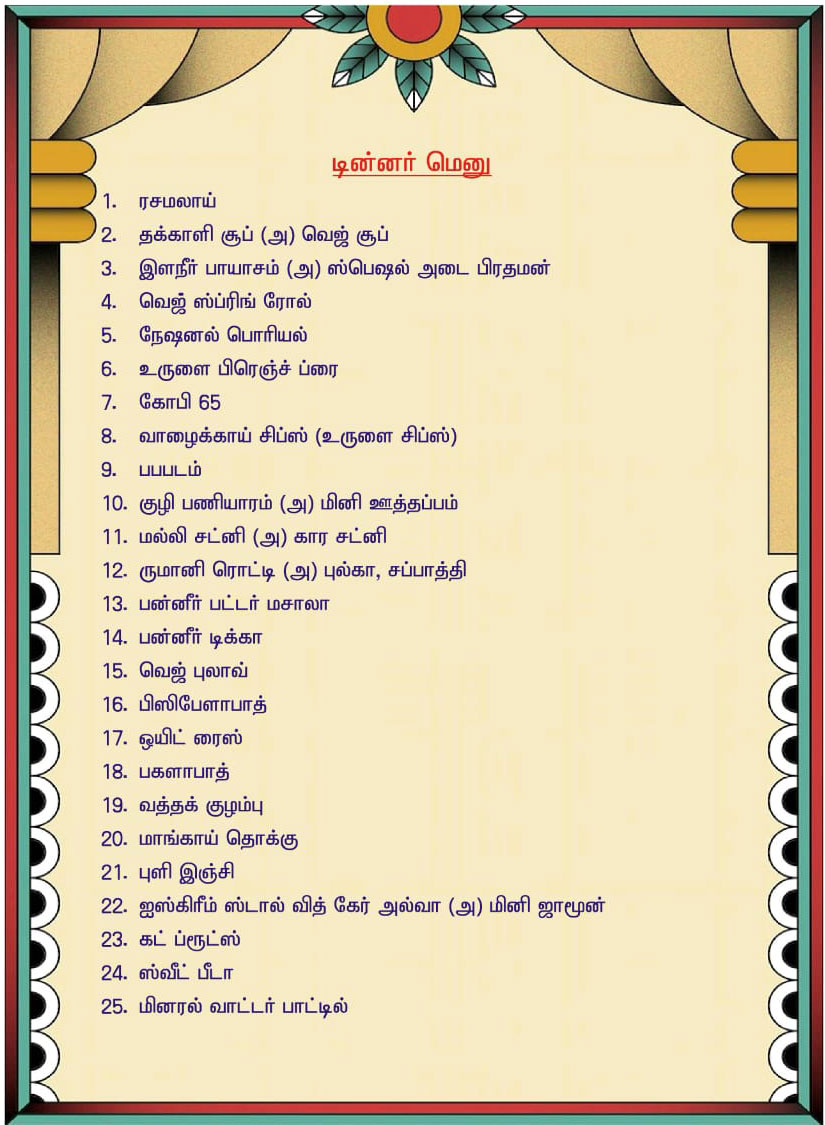 டின்னர் மெனு
1. ரசமலாய்
2. தக்காளி சூப் (அ) வெஜ் சூப்
3. இளநீர் பாயாசம் (அ) ஸ்பெஷல் அடை பிரதமன்
4. வெஜ் ஸ்ப்ரிங் ரோல்
5. நேஷனல் பொரியல்
6. உருளை பிரெஞ்ச் ப்ரை
7. கோபி 65
8. வாழைக்காய் சிப்ஸ் (உருளை சிப்ஸ்)
9. பபபடம்
10. குழி பணியாரம் (அ) மினி ஊத்தப்பம்
11. மல்லி சட்னி (அ) கார சட்னி
12. ருமானி ரொட்டி (அ) புல்கா, சப்பாத்தி
13. பன்னீர் பட்டர் மசாலா
14. பன்னீர் டிக்கா
15. வெஜ் புலாவ்
16. பிஸிபேளாபாத்
17. ஒயிட் ரைஸ்
18. பகளாபாத்
19. வத்தக் குழம்பு
20. மாங்காய் தொக்கு
21. புளி இஞ்சி
22. ஐஸ்கிரீம் ஸ்டால் வித் கேர் அல்வா (அ) மினி ஜாமூன்
23. கட் ப்ரூட்ஸ்
24. ஸ்வீட் பீடா
25. மினரல் வாட்டர் பாட்டில்